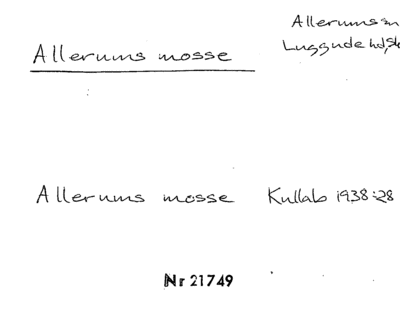 Allerums sn
Allerums mosse
Luggude hd, Sk
Allerums mosse Kullab 1938:28
Nr 21749